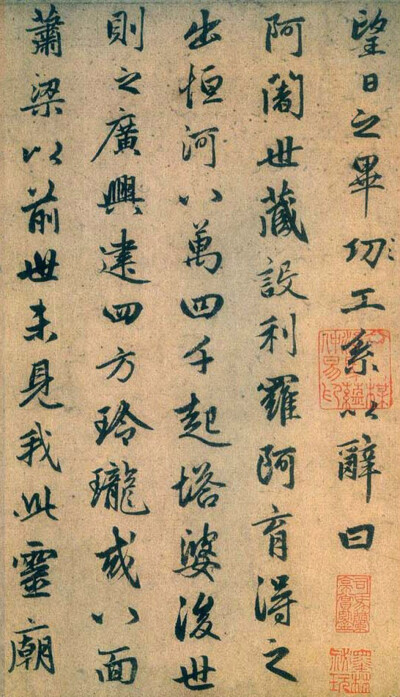 望日之畢功工系以辭曰
阿闍世藏設利羅阿育得之
出恒河八萬四千起塔婆後世
則之廣興建四方玲瓏或八面
蕭梁以前世未見我此靈廟